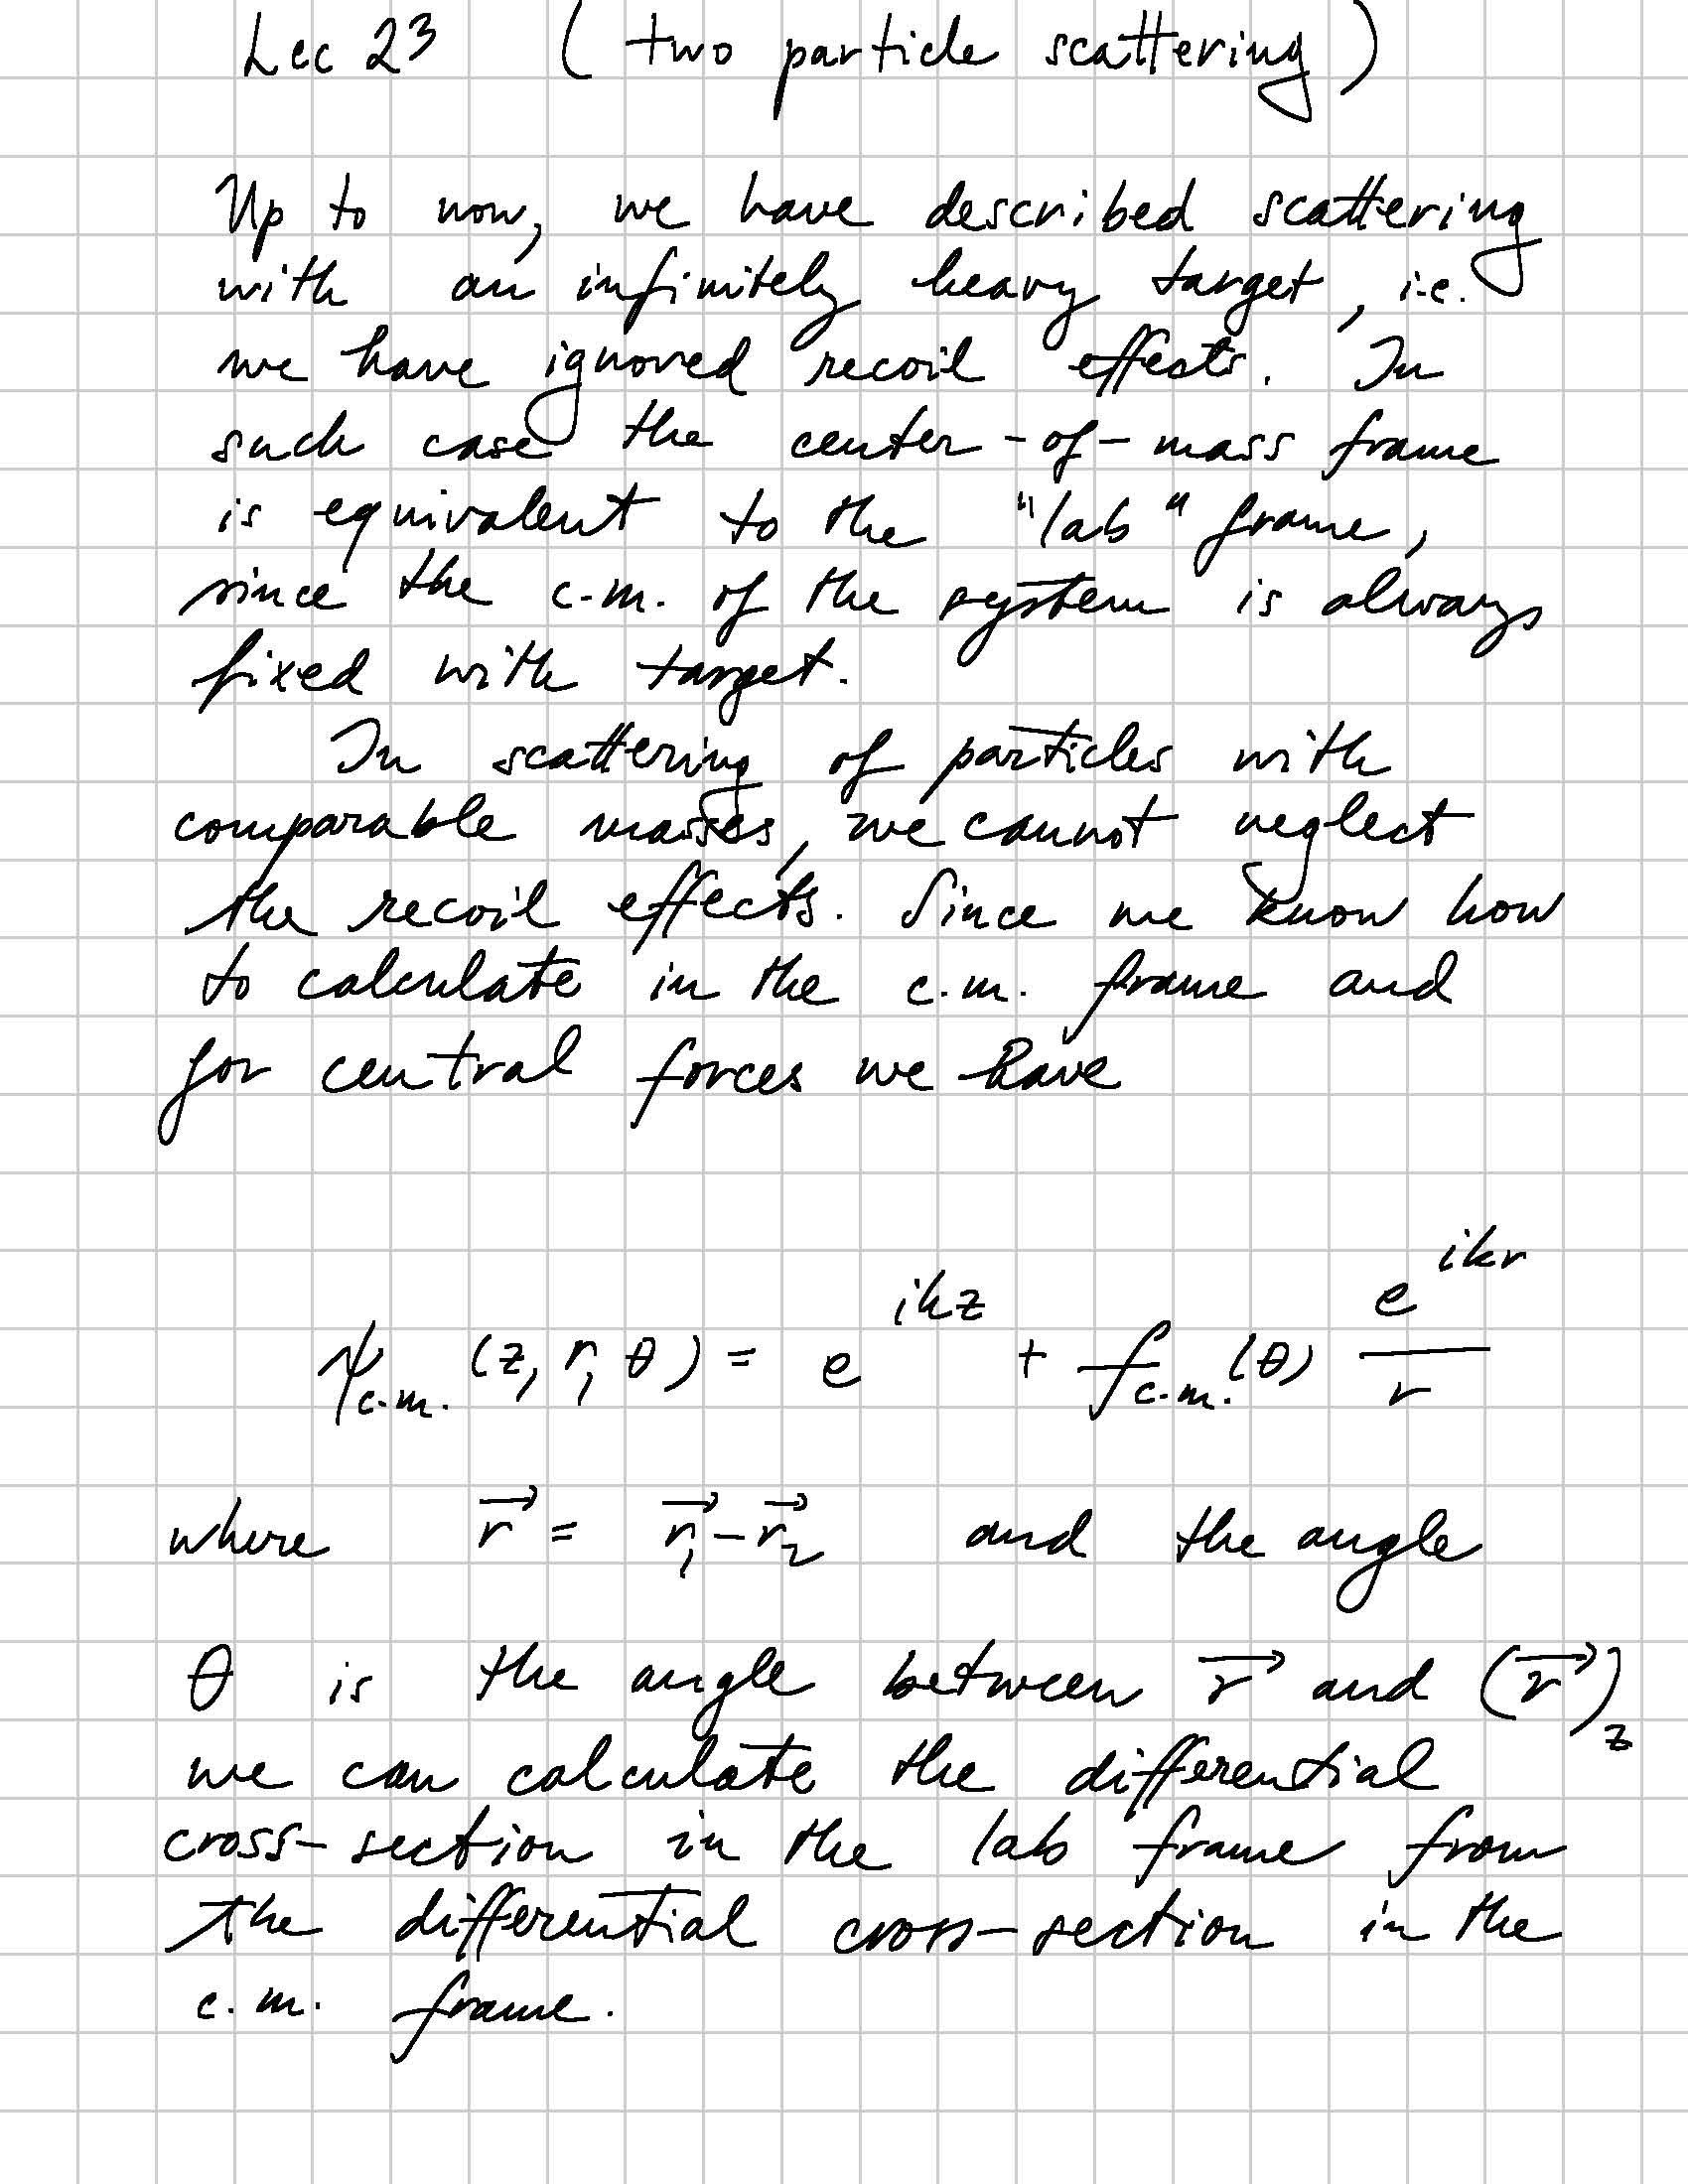 Lec 23 (two particle scattering)
Up to now, we have described scattering
with an infinitely heavy target, i.e.
we have ignored recoil effects. In
such case the center-of-mass frame
is equivalent to the "lab" frame,
since the c.m. of the system is always
fixed with target.
In scattering of particles with
comparable masses, we cannot neglect
the recoil effects. Since we know how
to calculate in the c.m. frame and
for central forces we have
ψ_{c.m.} (z, r, θ) = e^{ikz} + f_{c.m.}(θ) \frac{e^{ikr}}{r}
where \vec{r} = \vec{r_1} - \vec{r_2} and the angle
θ is the angle between \vec{r} and (\vec{r})_z
we can calculate the differential
cross-section in the lab frame from
the differential cross-section in the
c.m. frame.